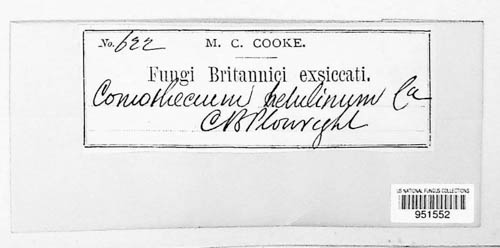 No. 622 M. C. COOKE.
Fungi Britannici exsiccati.
Coniothecium betulinum Ca
C B Plowright
US NATIONAL FUNGUS COLLECTIONS
951552